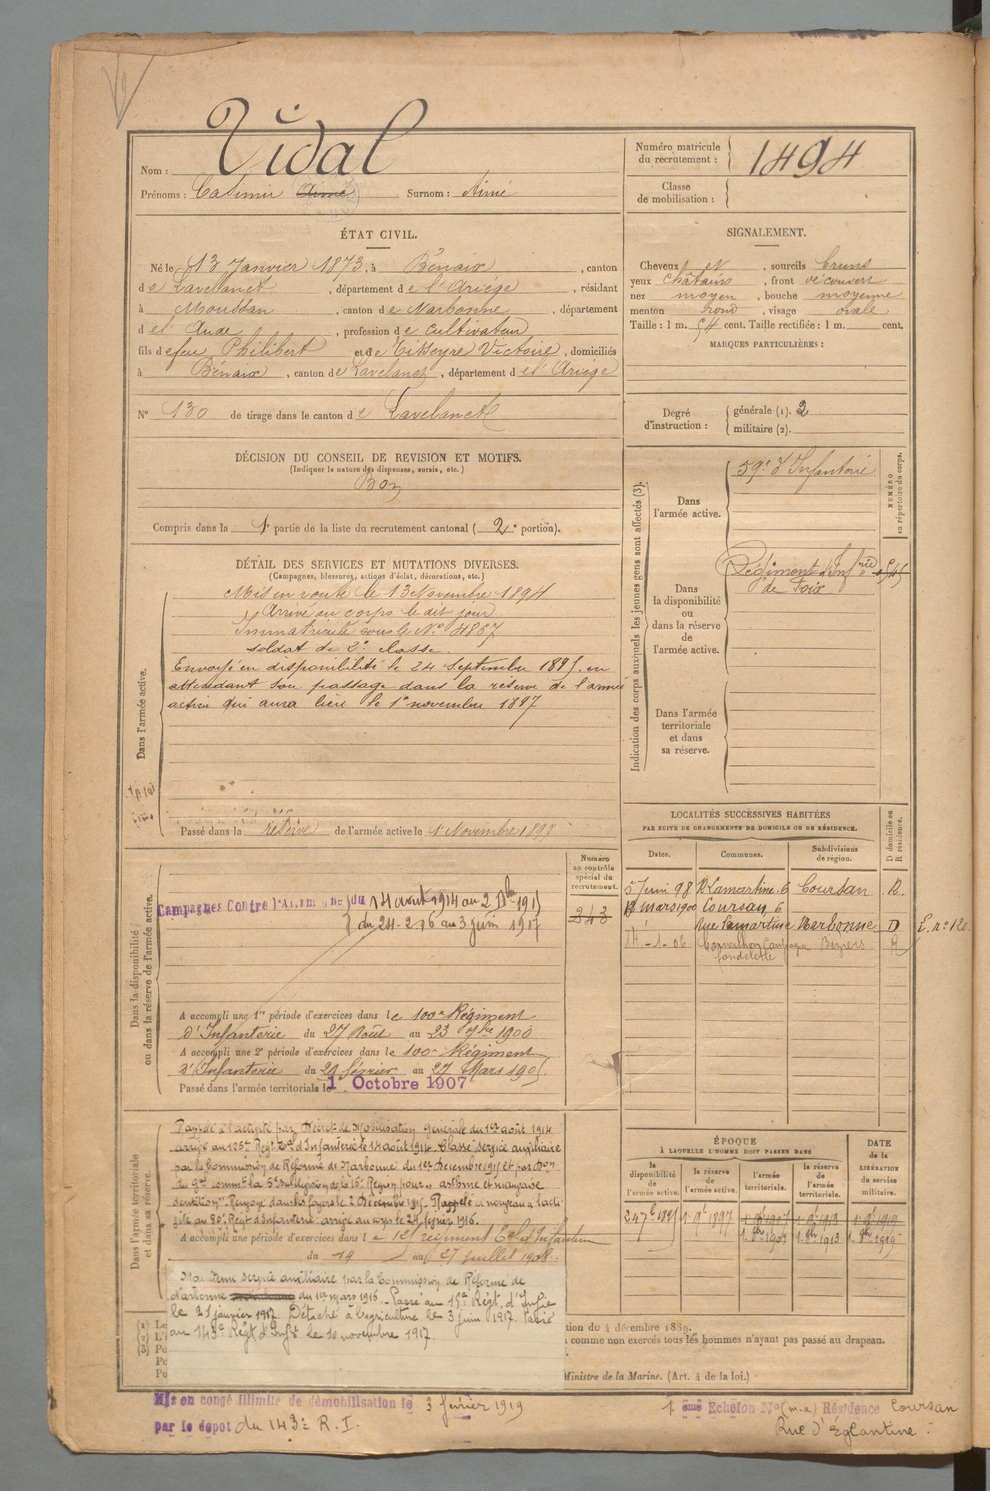 Nom : Vidal
Prénoms : Casimir Aimé Surnom : Aimé
Numéro matricule du recrutement : 1494
Classe de mobilisation :
ÉTAT CIVIL.
Né le 13 Janvier 1873, à Bénaix, canton
de Lavelanet, département de l'Ariège, résidant
à Moussan, canton de Narbonne, département
de l'Aude, profession de Cultivateur
fils de feu Philibert et de Tisseyre Victoire, domiciliés
à Bénaix, canton de Lavelanet, département de l'Ariège
N° 130 de tirage dans le canton de Lavelanet
SIGNALEMENT.
Cheveux et, sourcils bruns
yeux châtains, front découvert
nez moyen, bouche moyenne
menton rond, visage ovale
Taille : 1 m. 54 cent. Taille rectifiée : 1 m. cent.
MARQUES PARTICULIÈRES :
Degré d'instruction : générale (1). 2
militaire (2).
DÉCISION DU CONSEIL DE REVISION ET MOTIFS.
(Indiquer la nature des dispenses, sursis, etc.)
Bon
Compris dans la 1e partie de la liste du recrutement cantonal (2e portion).
DÉTAIL DES SERVICES ET MUTATIONS DIVERSES.
(Campagnes, blessures, actions d'éclat, décorations, etc.)
Dans l'armée active.
Mis en route le 13 Novembre 1894
Arrivé au corps le dit jour
Immatriculé sous le N° 4867
soldat de 2e classe.
Envoyé en disponibilité le 24 septembre 1895 en
attendant son passage dans la réserve de l'armée
active qui aura lieu le 1er novembre 1897
Passé dans la réserve de l'armée active le 1 Novembre 189
Indication des corps auxquels les jeunes gens sont affectés (3).
NUMÉRO au répertoire du corps.
Dans l'armée active.
59e d'Infanterie
Dans la disponibilité ou dans la réserve de l'armée active.
Régiment d'Infrie
de Foix
Dans l'armée territoriale et dans sa réserve.
LOCALITÉS SUCCESSIVES HABITÉES
PAR SUITE DE CHANGEMENTS DE DOMICILE OU DE RÉSIDENCE.
Dates. Communes. Subdivisions de région. D domicile ou R résidence.
5 Juin 98 R. Lamartine 6 Coursan R.
12 mars 1900 Coursan, 6
Rue Lamartine Narbonne D
14-1-06 Béziers R
Dans la disponibilité ou dans la réserve de l'armée active.
Numéro au contrôle spécial du recrutement.
243
Campagnes Contre l'Allemagne du 14 août 1914 au 2 Xbre 1915
du 24-2-16 au 3 juin 1917
A accompli une 1re période d'exercices dans le 100e Régiment
d'Infanterie du 27 Août au 23 7bre 1900
A accompli une 2e période d'exercices dans le 100e Régiment
d'Infanterie du 21 février au 27 Mars 1905
Passé dans l'armée territoriale le 1er Octobre 1907
Dans l'armée territoriale et dans sa réserve.
Rappelé à l'activité par Décret de Mobilisation générale du 1er août 1914
arrivé au 125e Régt Tal d'Infanterie le 14 août 1914. Classé service auxiliaire
par la Commission de Réforme de Narbonne du 1er Décembre 1915 et par Don
du Gal comm. la Subdivision de la 16e Région pour "asthme et mauvaise
dentition". Renvoyé dans ses foyers le 2 Décembre 1915. Rappelé à nouveau à l'acti-
vité au 80e Régt d'Infanterie arrivé au corps le 24 février 1916.
A accompli une période d'exercices dans le 12 régiment d'Infanterie
du 19 au 27 juillet 1908.
Maintenu service auxiliaire par la Commission de Réforme de
Narbonne du 1er mars 1916. Passé au 15e Régt. d'Infie
le 21 janvier 1917. Détaché à l'agriculture le 3 juin 1917. Passé
au 143e Régt d'Inft le 10 novembre 1917.
ÉPOQUE
À LAQUELLE L'HOMME DOIT PASSER DANS
la disponibilité de l'armée active. la réserve de l'armée active. l'armée territoriale. la réserve de l'armée territoriale.
DATE DE LA LIBÉRATION DU service militaire.
24 7bre 1895 1. 9bre 1897 1. 9bre 1907 1. 9bre 1913 1. 9bre 1919
tion du 4 décembre 1889.
comme non exercés tous les hommes n'ayant pas passé au drapeau.
Ministre de la Marine. (Art. 4 de la loi.)
Mis en congé illimité de démobilisation le 3 février 1919
par le dépôt du 143e R. I.
1 ème Echelon N° (m.a) Résidence Coursan
Rue d'Églantine